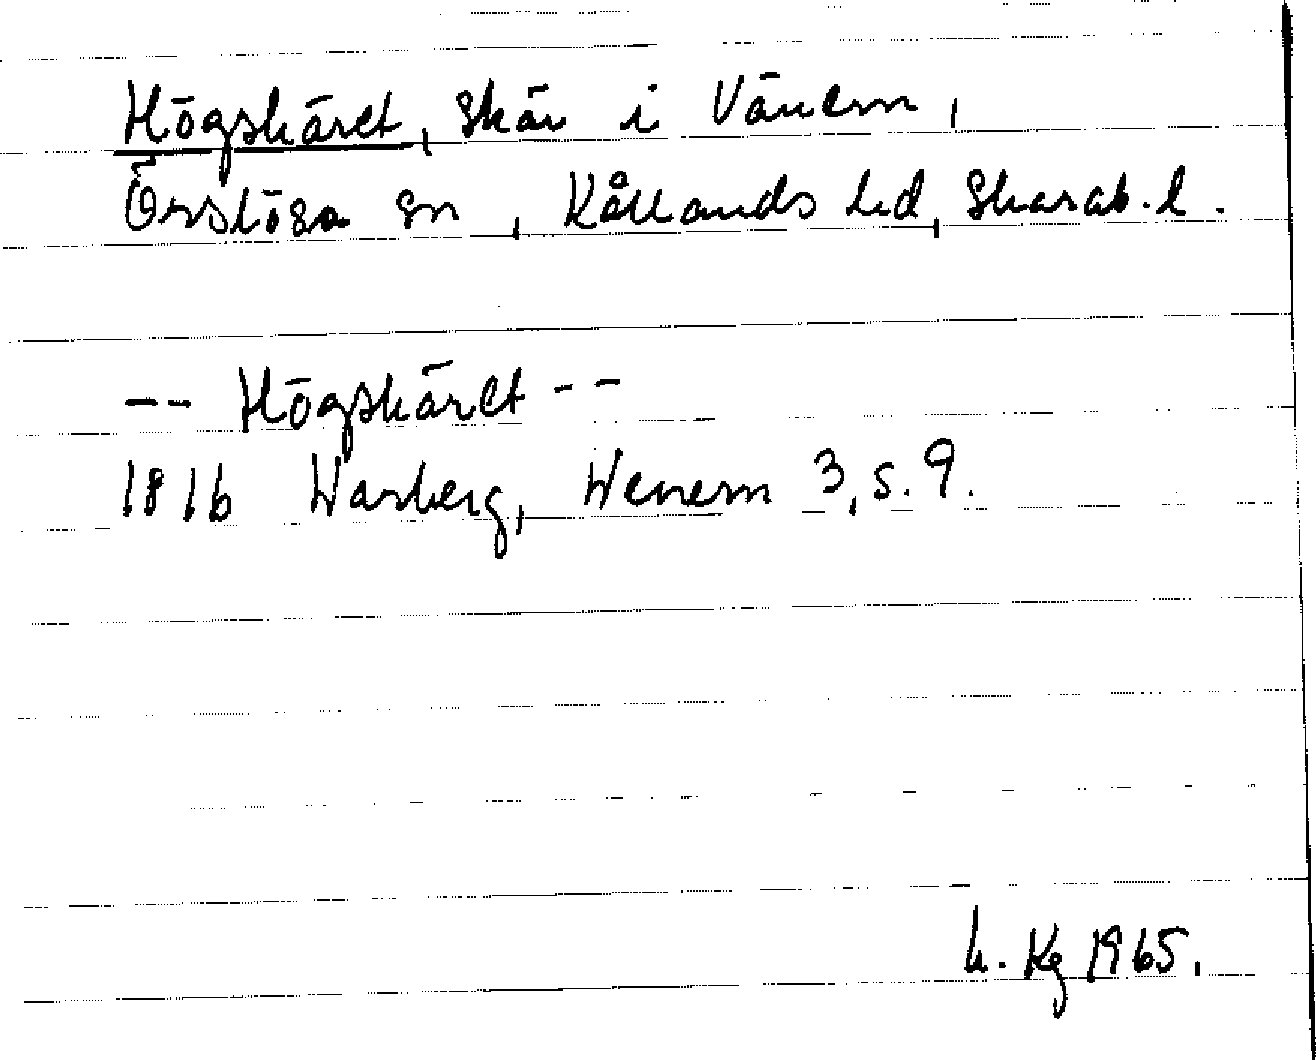 Högskäret, skär i Vänern,
Örslösa sn, Kållands hd, Skarab. l.
-- Högskäret --
1816 Warberg, Wenern 3, s. 9.
h. Kg 1965.